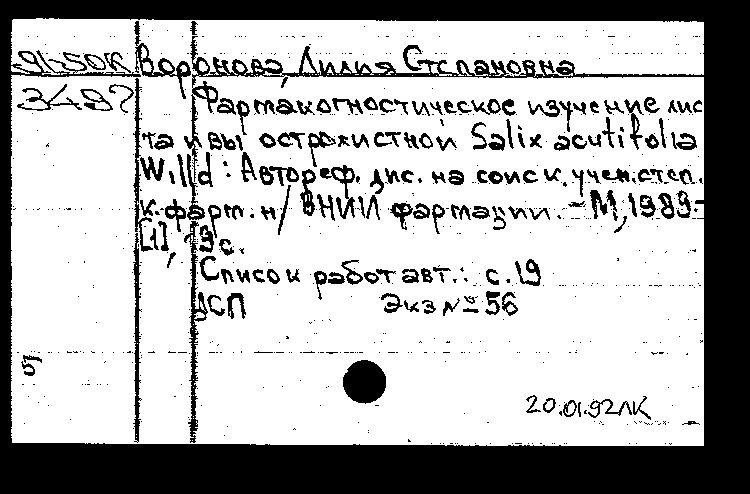 91-50К Воронова, Лилия Степановна
3497 Фармакогностическое изучение лис
та ивы остролистной Salix acutifolia
Willd: Автореф. дис. на соиск. учен. степ.
к. фарм. н/ ВНИИ фармации. - М, 1989.-
[1], 19 с.
Список работ авт.: с. 19
ДСП Экз № 56
20.01.92 ЛК